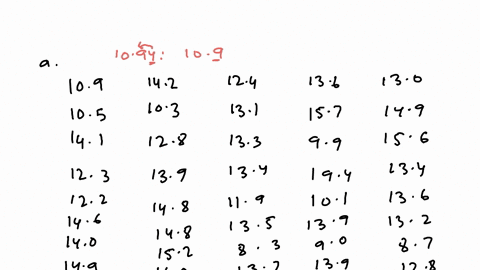 10.94: 10.9
a.
10.9 14.2 12.4 13.6 13.0
10.5 10.3 13.1 15.7 14.9
14.1 12.8 13.3 9.9 15.6
12.3 13.9 13.4 19.4 13.4
12.2 14.8 11.9 10.1 13.6
14.6 14.8 13.5 13.9 13.2
14.0 15.2 8.3 9.0 8.7
14.9 13.9 12.8